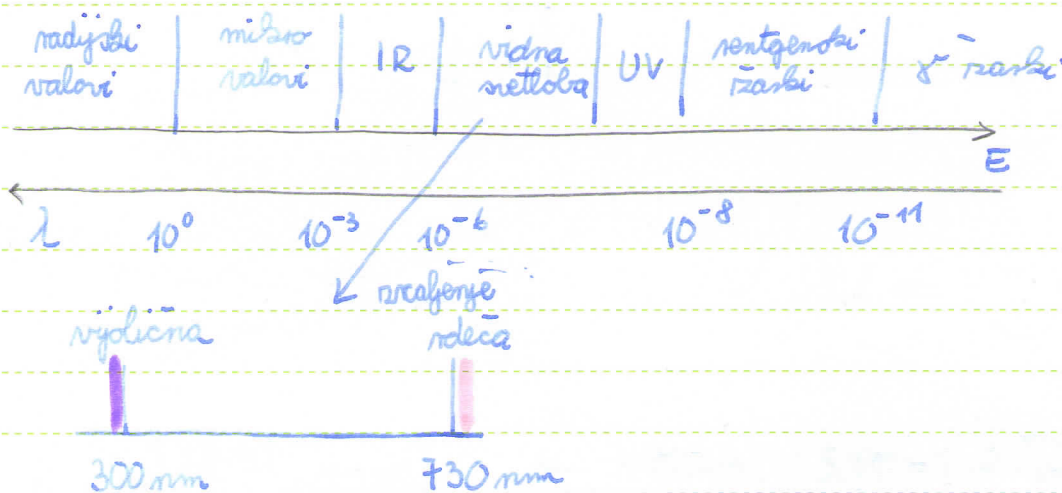 radijski valovi
mikro valovi
IR
vidna svetloba
UV
rentgenski žarki
γ žarki
E
λ 10⁰ 10⁻³ 10⁻⁶ 10⁻⁸ 10⁻¹¹
vijolična
rdeča
300 nm 730 nm